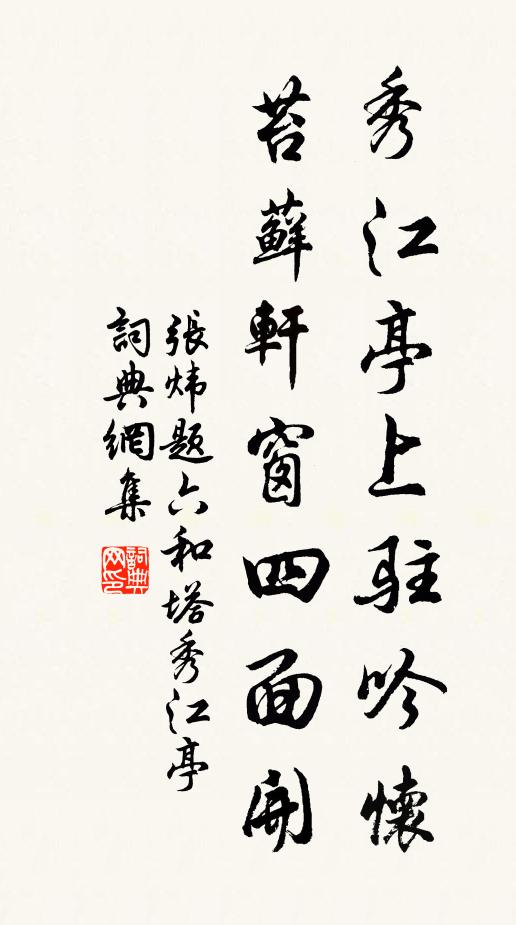 秀江亭上駐吟懷
苔蘚軒窗四面開
張煒題六和塔秀江亭
詞典網集
詞典网印